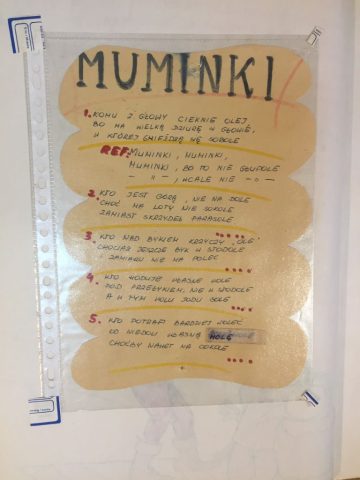 MUMINKI
1. KOMU Z GŁOWY CIEKNIE OLEJ,
BO MA WIELKĄ DZIURĘ W GŁOWIE,
W KTÓREJ GNIEŻDŻĄ SIĘ SOBOLE
REF: MUMINKI, MUMINKI,
MUMINKI, BO TO NIE GŁUPOLE
— " — , WCALE NIE — " —
2. KTO JEST GÓRĄ, NIE NA DOLE
CHOĆ NA LOTY NIE SOKOLE
ZAMIAST SKRZYDEŁ PARASOLE
....
3. KTO NAD BYKIEM KRZYCZY „OLE"
CHOCIAŻ JESZCZE BYK W STODOLE
I ZAMIARU NIE MA POLEC
....
4. KTO HODUJE WŁASNE MOLE
POD PRZEŚYKIEM, NIE W STODOLE
A W TYM
....
5. KTO POTRAFI BARDZIEJ
OD NIEDOLI WŁASNĄ
CHOĆBY NAWET NA COKOLE
....